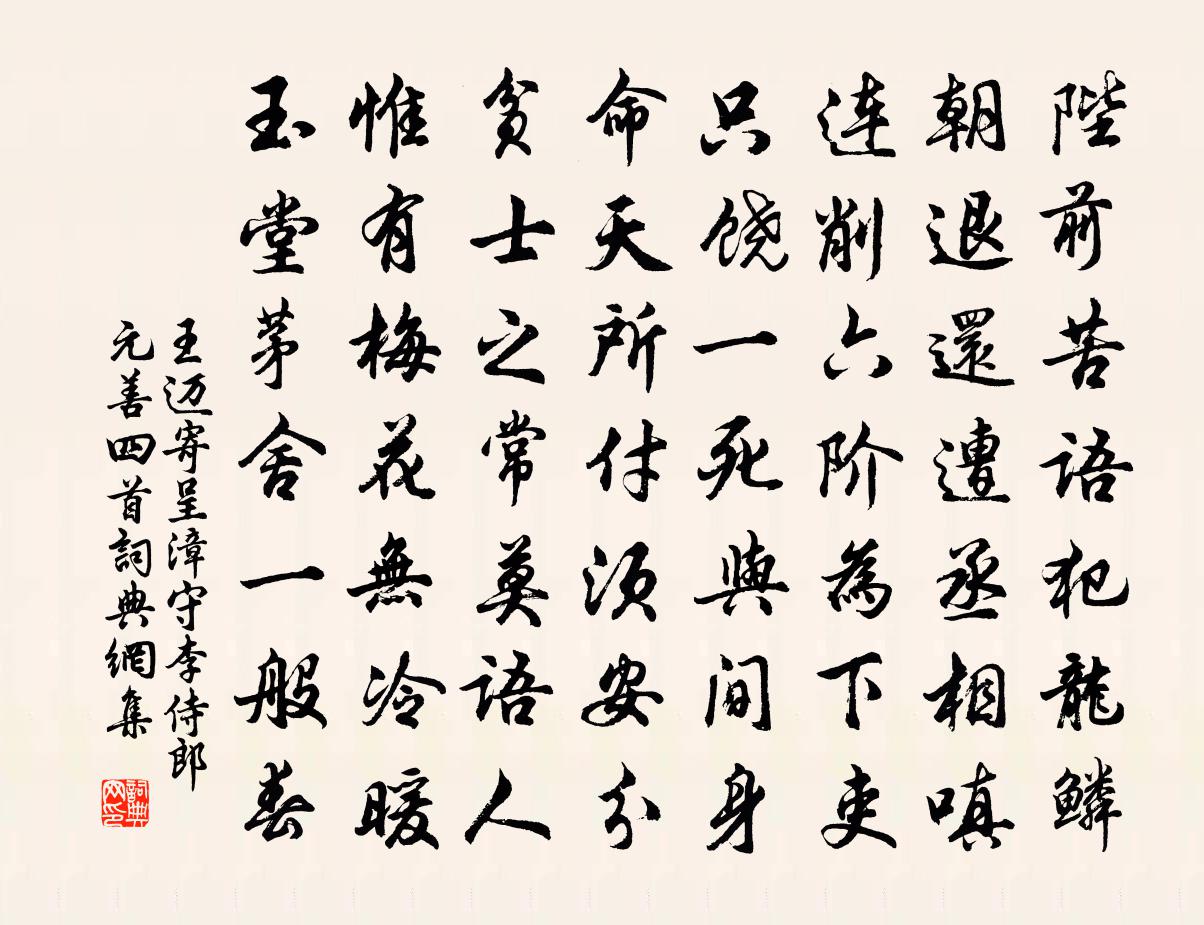 陛前苦语犯龍鳞
朝退還遭丞相嗔
连削六阶為下吏
只饶一死與间身
命天所付须安分
贫士之常莫语人
惟有梅花無冷暖
玉堂茅舍一般春
王迈寄呈漳守李侍郎
元善四首詞典網集
詞典
网印